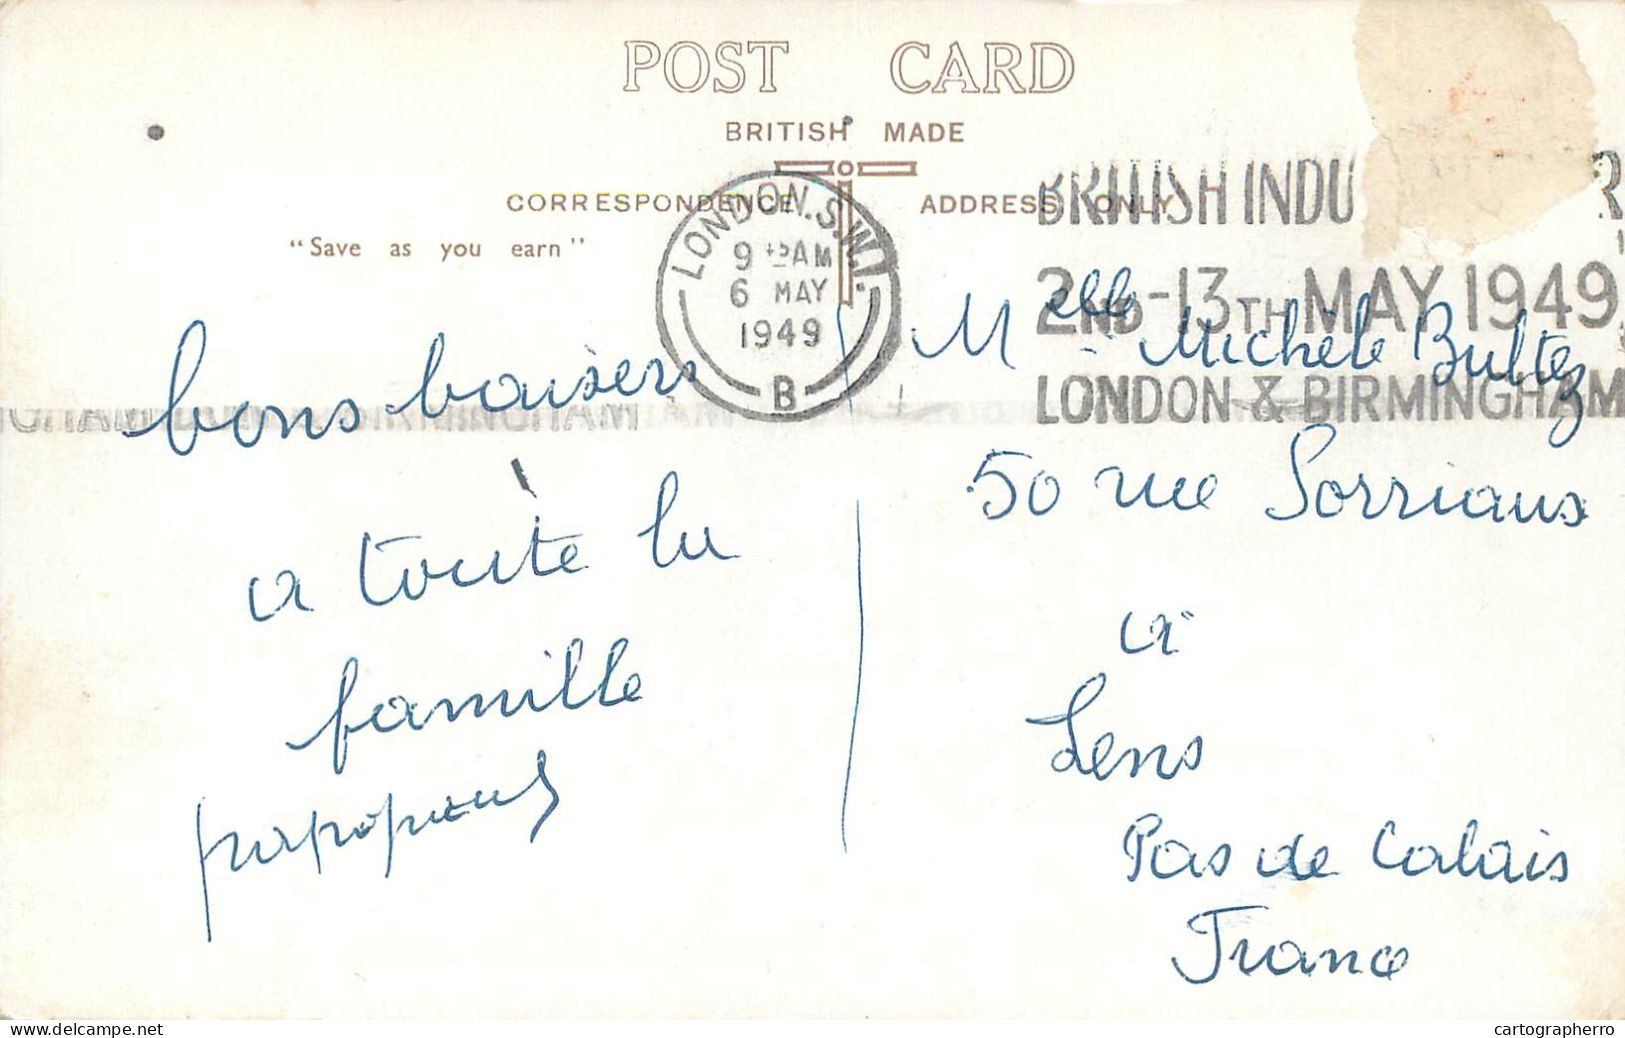 POST CARD
BRITISH MADE
CORRESPONDENCE ADDRESS ONLY
"Save as you earn"
LONDON.S.W.1.
9 15 AM
6 MAY
1949
B
BRITISH INDU R
2ND-13TH MAY 1949
LONDON & BIRMINGHAM
bons baisers
a toute la
famille
Melle Michele Bultez
50 rue Sorriaux
à
Lens
Pas de Calais
France
cartographerro